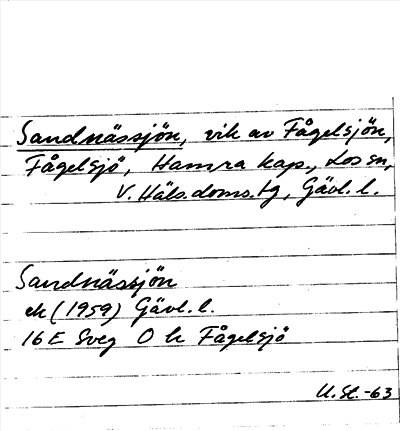 Sandnässjön, vik av Fågelsjön,
Fågelsjö, Hamra kap., Los sn,
V. Häls. doms. tg, Gävl. l.
Sandnässjön
ek (1959) Gävl. l.
16 E Sveg O h Fågelsjö
U. St. -63